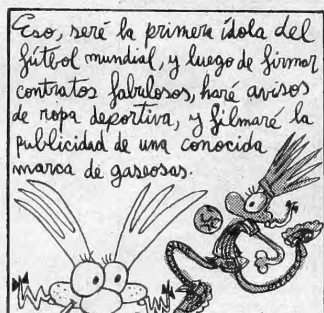 Eso, seré la primera ídola del
fútbol mundial, y luego de firmar
contratos fabulosos, haré avisos
de ropa deportiva, y filmaré la
publicidad de una conocida
marca de gaseosas.